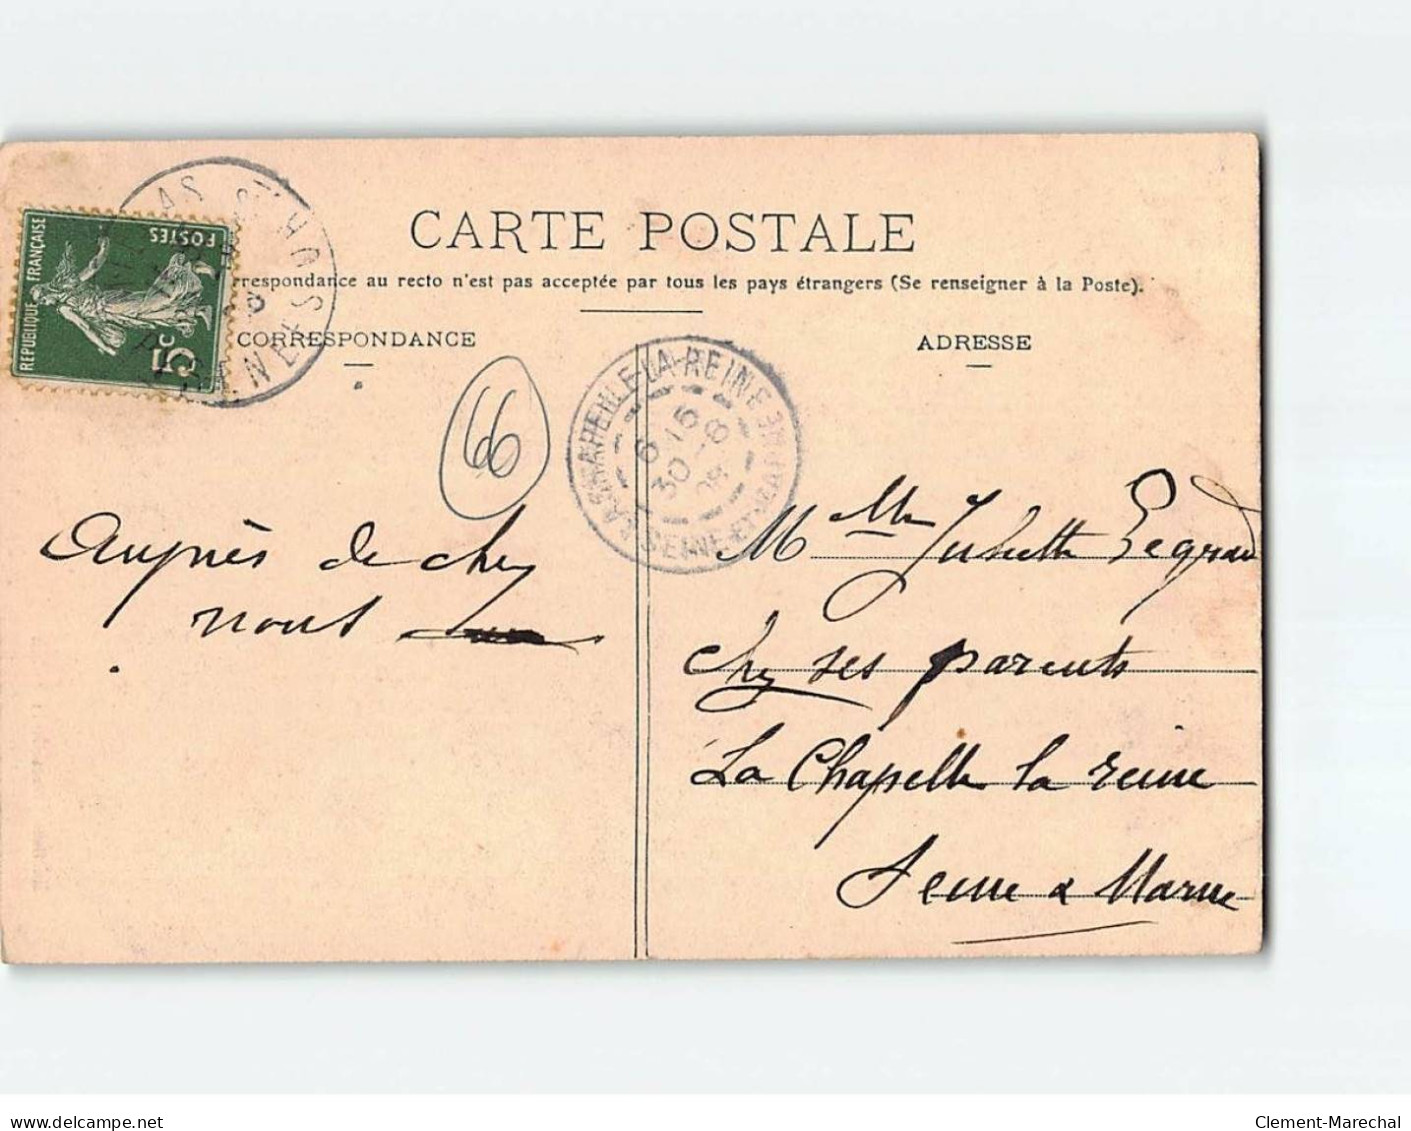 CARTE POSTALE
rrespondance au recto n'est pas acceptée par tous les pays étrangers (Se renseigner à la Poste).
CORRESPONDANCE
ADRESSE
REPUBLIQUE FRANÇAISE
POSTES
5c
66
LA-REINE
6 15
30 -8
SEINE-ET-MARNE
auprès de chez
nous
M Mlle Juliette
chez ses parents
La Chapelle la reine
Seine & Marne
delcampe.net
Clement-Marechal